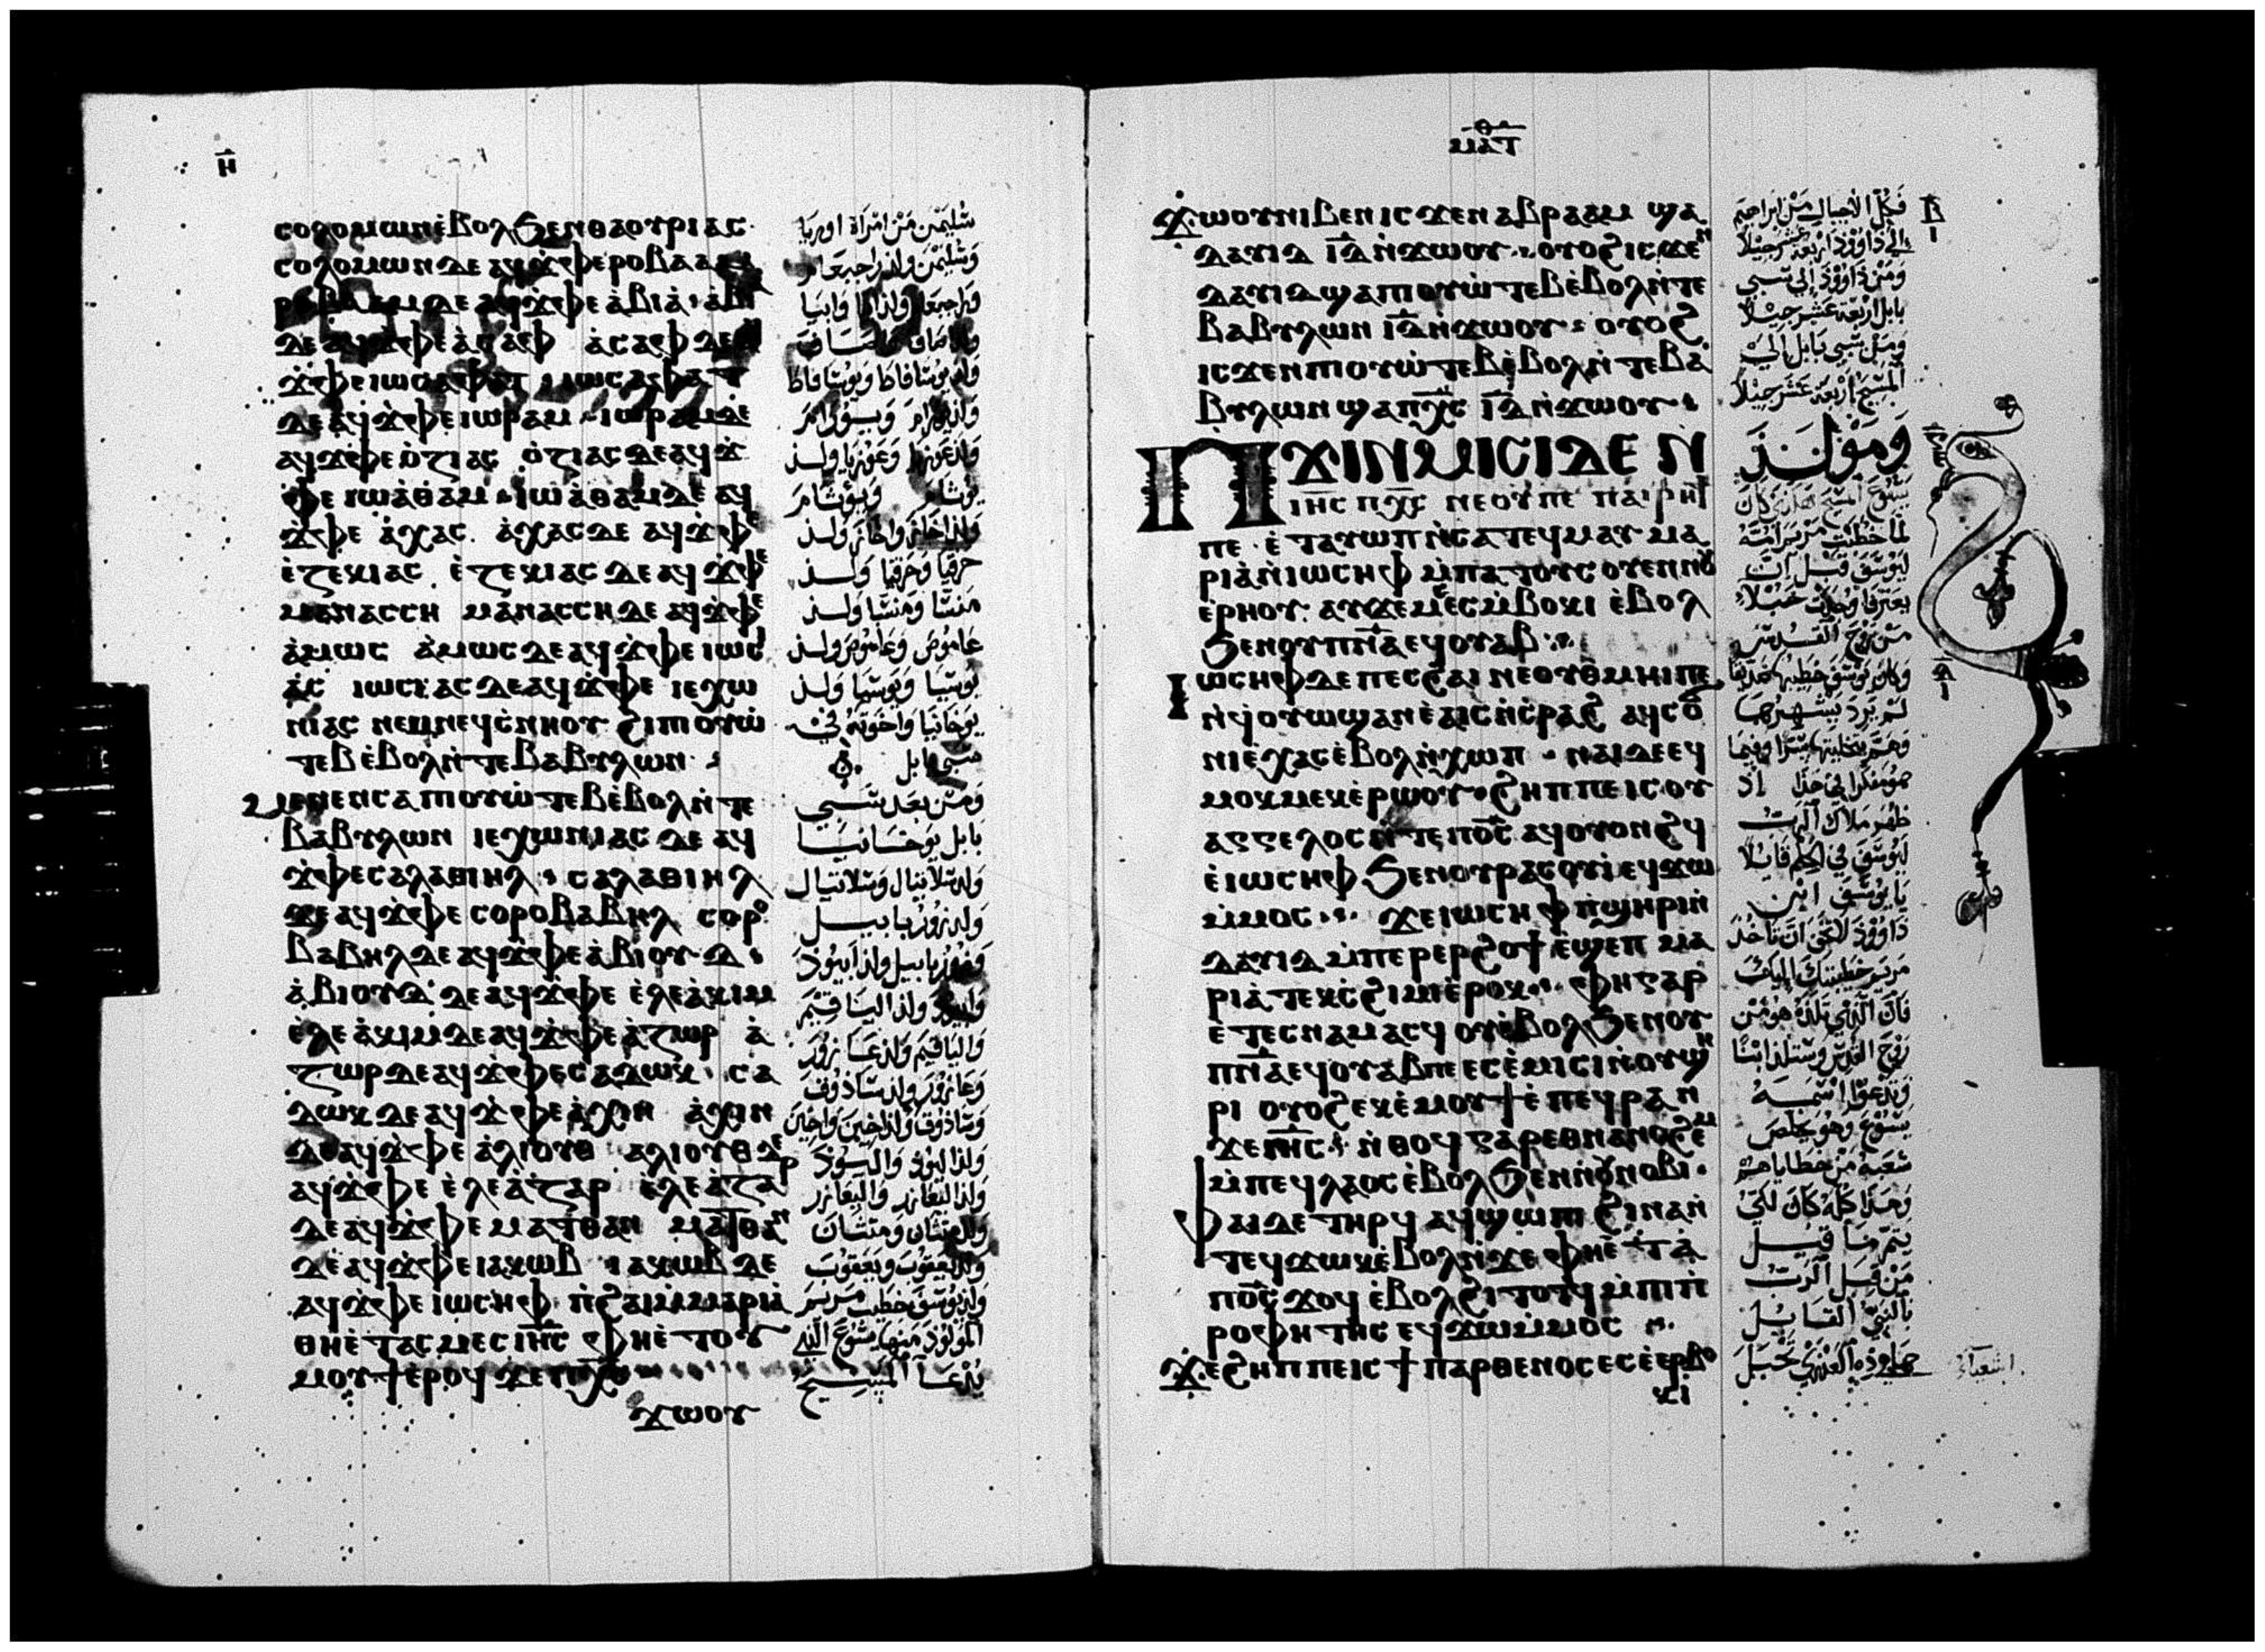 ⲏ̅
ⲥⲟⲗⲟⲙⲱⲛ ⲉ̀ⲃⲟⲗ ϧⲉⲛ ⲑⲁⲟⲩⲣⲓⲁⲥ
ⲥⲟⲗⲟⲙⲱⲛ ⲇⲉ ⲁϥϫ̀ⲫⲉ ⲣⲟⲃⲁⲁⲙ
ⲇⲉ ⲁϥϫ̀ⲫⲉ ⲁ̀ⲃⲓⲁ̀ · ⲁ̀ⲃⲓⲁ̀
ⲇⲉ ⲁϥϫ̀ⲫⲉ ⲁ̀ⲥⲁⲫ ⲁ̀ⲥⲁⲫ ⲇⲉ ⲁϥ
ϫ̀ⲫⲉ ⲓⲱⲥⲁⲫⲁⲧ · ⲓⲱⲥⲁⲫⲁⲧ
ⲇⲉ ⲁϥϫ̀ⲫⲉ ⲓⲱⲣⲁⲙ · ⲓⲱⲣⲁⲙ ⲇⲉ
ⲁϥϫ̀ⲫⲉ ⲟ̀ⲍⲓⲁⲥ ⲟ̀ⲍⲓⲁⲥ ⲇⲉ ⲁϥϫ̀
ⲫⲉ ⲓⲱⲁ̀ⲑⲁⲙ · ⲓⲱⲁ̀ⲑⲁⲙ ⲇⲉ ⲁϥ
ϫ̀ⲫⲉ ⲁ̀ⲭⲁⲥ · ⲁ̀ⲭⲁⲥ ⲇⲉ ⲁϥϫ̀ⲫⲉ
ⲉ̀ⲍⲉⲕⲓⲁⲥ · ⲉ̀ⲍⲉⲕⲓⲁⲥ ⲇⲉ ⲁϥϫ̀ⲫⲉ
ⲙⲁⲛⲁⲥⲥⲏ ⲙⲁⲛⲁⲥⲥⲏ ⲇⲉ ⲁϥϫ̀ⲫⲉ
ⲁ̀ⲙⲱⲥ ⲁ̀ⲙⲱⲥ ⲇⲉ ⲁϥϫ̀ⲫⲉ ⲓⲱⲥⲓ
ⲁ̀ⲥ ⲓⲱⲥⲓⲁⲥ ⲇⲉ ⲁϥϫ̀ⲫⲉ ⲓⲉⲭⲱ
ⲛⲓⲁⲥ ⲛⲉⲙ ⲛⲉϥⲥ̀ⲛⲏⲟⲩ ϩⲓ ⲡⲓⲟⲩⲱ̀
ⲧⲉⲃ ⲉ̀ⲃⲟⲗ ⲛ̀ⲧⲉ ⲃⲁⲃⲩⲗⲱⲛ ·
ⲙⲉⲛⲉⲛⲥⲁ ⲡⲓⲟⲩⲱ̀ⲧⲉⲃ ⲉ̀ⲃⲟⲗ ⲛ̀ⲧⲉ
ⲃⲁⲃⲩⲗⲱⲛ ⲓⲉⲭⲱⲛⲓⲁⲥ ⲇⲉ ⲁϥ
ϫ̀ⲫⲉ ⲥⲁⲗⲁⲑⲓⲏⲗ · ⲥⲁⲗⲁⲑⲓⲏⲗ
ⲇⲉ ⲁϥϫ̀ⲫⲉ ⲥⲟⲣⲟⲃⲁⲃⲏⲗ ⲥⲟⲣⲟ
ⲃⲁⲃⲏⲗ ⲇⲉ ⲁϥϫ̀ⲫⲉ ⲁ̀ⲃⲓⲟⲩⲇ ·
ⲁ̀ⲃⲓⲟⲩⲇ ⲇⲉ ⲁϥϫ̀ⲫⲉ ⲉ̀ⲗⲉⲁ̀ⲕⲓⲙ
ⲉ̀ⲗⲉⲁ̀ⲕⲓⲙ ⲇⲉ ⲁϥϫ̀ⲫⲉ ⲁ̀ⲍⲱⲣ ⲁ̀
ⲍⲱⲣ ⲇⲉ ⲁϥϫ̀ⲫⲉ ⲥⲁⲇⲱⲕ · ⲥⲁ
ⲇⲱⲕ ⲇⲉ ⲁϥϫ̀ⲫⲉ ⲁ̀ⲭⲓⲛ ⲁ̀ⲭⲓⲛ
ⲇⲉ ⲁϥϫ̀ⲫⲉ ⲁ̀ⲗⲓⲟⲩⲑ ⲁⲗⲓⲟⲩⲑ ⲇⲉ
ⲁϥϫ̀ⲫⲉ ⲉ̀ⲗⲉⲁ̀ⲍⲁⲣ ⲉ̀ⲗⲉⲁ̀ⲍⲁⲣ
ⲇⲉ ⲁϥϫ̀ⲫⲉ ⲙⲁⲧⲑⲁⲛ ⲙⲁⲧⲑⲁⲛ
ⲇⲉ ⲁϥϫ̀ⲫⲉ ⲓⲁⲕⲱⲃ · ⲓⲁⲕⲱⲃ ⲇⲉ
ⲁϥϫ̀ⲫⲉ ⲓⲱⲥⲏⲫ ⲡ̀ϩⲁⲓ ⲙ̀ⲙⲁⲣⲓⲁ̀
ⲑⲏⲉ̀ⲧⲁⲥⲙⲉⲥ ⲓⲏ̅ⲥ̅ ⲫⲏⲉ̀ⲧⲟⲩ
ⲙⲟⲩϯ ⲉ̀ⲣⲟϥ ϫⲉ ⲡⲭ̅ⲥ̅
ϫⲱⲟⲩ
سُليمٰن من امراة اوريا
وسُليمٰن ولد راحبعام
وراحبعام ولد ابيا وابيا
ولد يوشافاط ويوشافاط
ولد يورام ويورام
ولد عوزيا وعوزيا ولد
يوثام ويوثام
ولد احاز واحاز ولد
حزقيا وحزقيا ولد
منسّا ومنسّا ولد
عاموص وعاموص ولد
يوشيا ويوشيا ولد
يوخانيا واخوته في
سبي بابل
ومن بعد سبي
بابل يوخانيا
ولد شلاتيال وشلاتيال
ولد زوربابيل
وزوربابيل ولد ابيوذ
وابيوذ ولد الياقيم
والياقيم ولد عازور
وعازور ولد ساذوق
وساذوق ولد اخين واخين
ولد اليوذ واليوذ
ولد اليعازر واليعازر
ولد متثان ومتثان
ولد يعقوب ويعقوب
ولد يوسف خطيب مريم
المولود منها يسوع الذي
يُدعا المسيح
ⲑ̅
ⲙⲁⲧ̅
ϫⲱⲟⲩ ⲛⲓⲃⲉⲛ ⲓⲥϫⲉⲛ ⲁⲃⲣⲁⲁⲙ ϣⲁ
ⲇⲁⲩⲓⲇ ⲓ̅ⲇ̅ ⲛ̀ϫⲱⲟⲩ · ⲟⲩⲟϩ ⲓⲥϫⲉⲛ
ⲇⲁⲩⲓⲇ ϣⲁ ⲡⲓⲟⲩⲱ̀ⲧⲉⲃ ⲉ̀ⲃⲟⲗ ⲛ̀ⲧⲉ
ⲃⲁⲃⲩⲗⲱⲛ ⲓ̅ⲇ̅ ⲛ̀ϫⲱⲟⲩ · ⲟⲩⲟϩ
ⲓⲥϫⲉⲛ ⲡⲓⲟⲩⲱ̀ⲧⲉⲃ ⲉ̀ⲃⲟⲗ ⲛ̀ⲧⲉ ⲃⲁ
ⲃⲩⲗⲱⲛ ϣⲁ ⲡⲭ̅ⲥ̅ ⲓ̅ⲇ̅ ⲛ̀ϫⲱⲟⲩ ·
ⲡϫⲓⲛⲙⲓⲥⲓ ⲇⲉ ⲛ
ⲓⲏ̅ⲥ̅ ⲡⲭ̅ⲥ̅ ⲛⲉ ⲟⲩ ⲡⲉ ⲡⲁⲓⲣⲏϯ
ⲡⲉ · ⲉ̀ⲧⲁⲩⲱⲡ ⲛ̀ⲥⲁ ⲧⲉϥⲙⲁⲩ ⲙⲁ
ⲣⲓⲁ̀ ⲛ̀ⲓⲱⲥⲏⲫ ⲙ̀ⲡⲁⲧⲟⲩⲥⲟⲩⲉⲛ ⲛⲟⲩ
ⲉ̀ⲣⲏⲟⲩ ⲁⲩϫⲉⲙⲥ ⲉⲥⲙ̀ⲃⲟⲕⲓ ⲉ̀ⲃⲟⲗ
ϧⲉⲛ ⲟⲩⲡ̅ⲛ̅ⲁ̅ ⲉϥⲟⲩⲁⲃ ·
ⲓⲱⲥⲏⲫ ⲇⲉ ⲡⲉⲥϩⲁⲓ ⲛⲉ ⲟⲩⲑ̀ⲙⲏⲓ ⲡⲉ
ⲛ̀ϥⲟⲩⲱϣ ⲁⲛ ⲉ̀ⲁⲓⲥ ⲛ̀ⲥ̀ⲣⲁϩ ⲁϥⲥⲟϭ
ⲛⲓ ⲉ̀ⲭⲁⲥ ⲉ̀ⲃⲟⲗ ⲛ̀ⲭⲱⲡ · ⲛⲁⲓ ⲇⲉ ⲉϥ
ⲙⲟⲕⲙⲉⲕ ⲉ̀ⲣⲱⲟⲩ · ϩⲏⲡⲡⲉ ⲓⲥ ⲟⲩ
ⲁⲅⲅⲉⲗⲟⲥ ⲛ̀ⲧⲉ ⲡϭ̅ⲥ̅ ⲁϥⲟⲩⲟⲛϩϥ
ⲉ̀ⲓⲱⲥⲏⲫ ϧⲉⲛ ⲟⲩⲣⲁⲥⲟⲩⲓ̀ ⲉϥϫⲱ
ⲙ̀ⲙⲟⲥ · ϫⲉ ⲓⲱⲥⲏⲫ ⲡ̀ϣⲏⲣⲓ ⲛ̀
ⲇⲁⲩⲓⲇ ⲙ̀ⲡⲉⲣⲉⲣϩⲟϯ ⲉ̀ϣⲉⲡ ⲙⲁ
ⲣⲓⲁ̀ ⲧⲉⲕⲥ̀ϩⲓⲙⲓ ⲉ̀ⲣⲟⲕ · ⲫⲏ ⲅⲁⲣ
ⲉⲧⲉⲥⲛⲁⲙⲁⲥϥ ⲟⲩⲉ̀ⲃⲟⲗ ϧⲉⲛ ⲟⲩ
ⲡ̅ⲛ̅ⲁ̅ ⲉϥⲟⲩⲁⲃ ⲡⲉ ⲉⲥⲉ̀ⲙⲓⲥⲓ ⲛ̀ⲟⲩϣⲏ
ⲣⲓ ⲟⲩⲟϩ ⲉⲕⲉ̀ⲙⲟⲩϯ ⲉ̀ⲡⲉϥⲣⲁⲛ
ϫⲉ ⲓⲏ̅ⲥ̅ · ⲛ̀ⲑⲟϥ ⲅⲁⲣ ⲉⲑⲛⲁⲛⲟϩⲉⲙ
ⲙ̀ⲡⲉϥⲗⲁⲟⲥ ⲉ̀ⲃⲟⲗ ϧⲉⲛ ⲛⲟⲩⲛⲟⲃⲓ ·
ⲫⲁⲓ ⲇⲉ ⲧⲏⲣϥ ⲁϥϣⲱⲡⲓ ϩⲓⲛⲁ ⲛ̀
ⲧⲉϥϫⲱⲕ ⲉ̀ⲃⲟⲗ ⲛ̀ϫⲉ ⲫⲏⲉ̀ⲧⲁ
ⲡϭ̅ⲥ̅ ϫⲟϥ ⲉ̀ⲃⲟⲗ ϩⲓⲧⲟⲧϥ ⲙ̀ⲡⲓⲡ̀
ⲣⲟⲫⲏⲧⲏⲥ ⲉϥϫⲱ ⲙ̀ⲙⲟⲥ
ϫⲉ ϩⲏⲡⲡⲉ ⲓⲥ ϯⲡⲁⲣⲑⲉⲛⲟⲥ ⲉⲥⲉ̀ⲉⲣⲃⲟ
ⲕⲓ
فكل الاجيال من ابراهيم
الى داوود اربعة عشر جيلا
ومن داوود الى سبي
بابل اربعة عشر جيلا
ومن سبي بابل الى
المسيح اربعة عشر جيلا
ومولد
يسوع المسيح هكذا كان
لما خطبت مريم امه
ليوسف قبل ان
يعترفا وجدت حبلا
من روح القدس
وكان يوسف خطيبها صديقا
لم يرد يشهرها
وهم بتخليتها سرا وفيما
هو مفكر في هذا اذ
ظهر ملاك الرب
ليوسف في الحلم قايلا
يا يوسف ابن
داوود لا تخف ان تاخذ
مريم خطيبتك اليك
فان الذي تلده هو من
روح القدس وستلد ابنا
وتدعوا اسمه
يسوع وهو يخلص
شعبه من خطاياهم
وهذا كله كان لكي
يتم ما قيل
من قبل الرب
بالنبي القايل
هاهوذه العذري تحبل
اشعياء